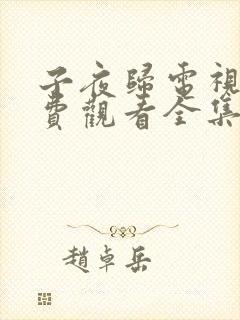 子夜歸電視
費觀看全集
趙卓岳